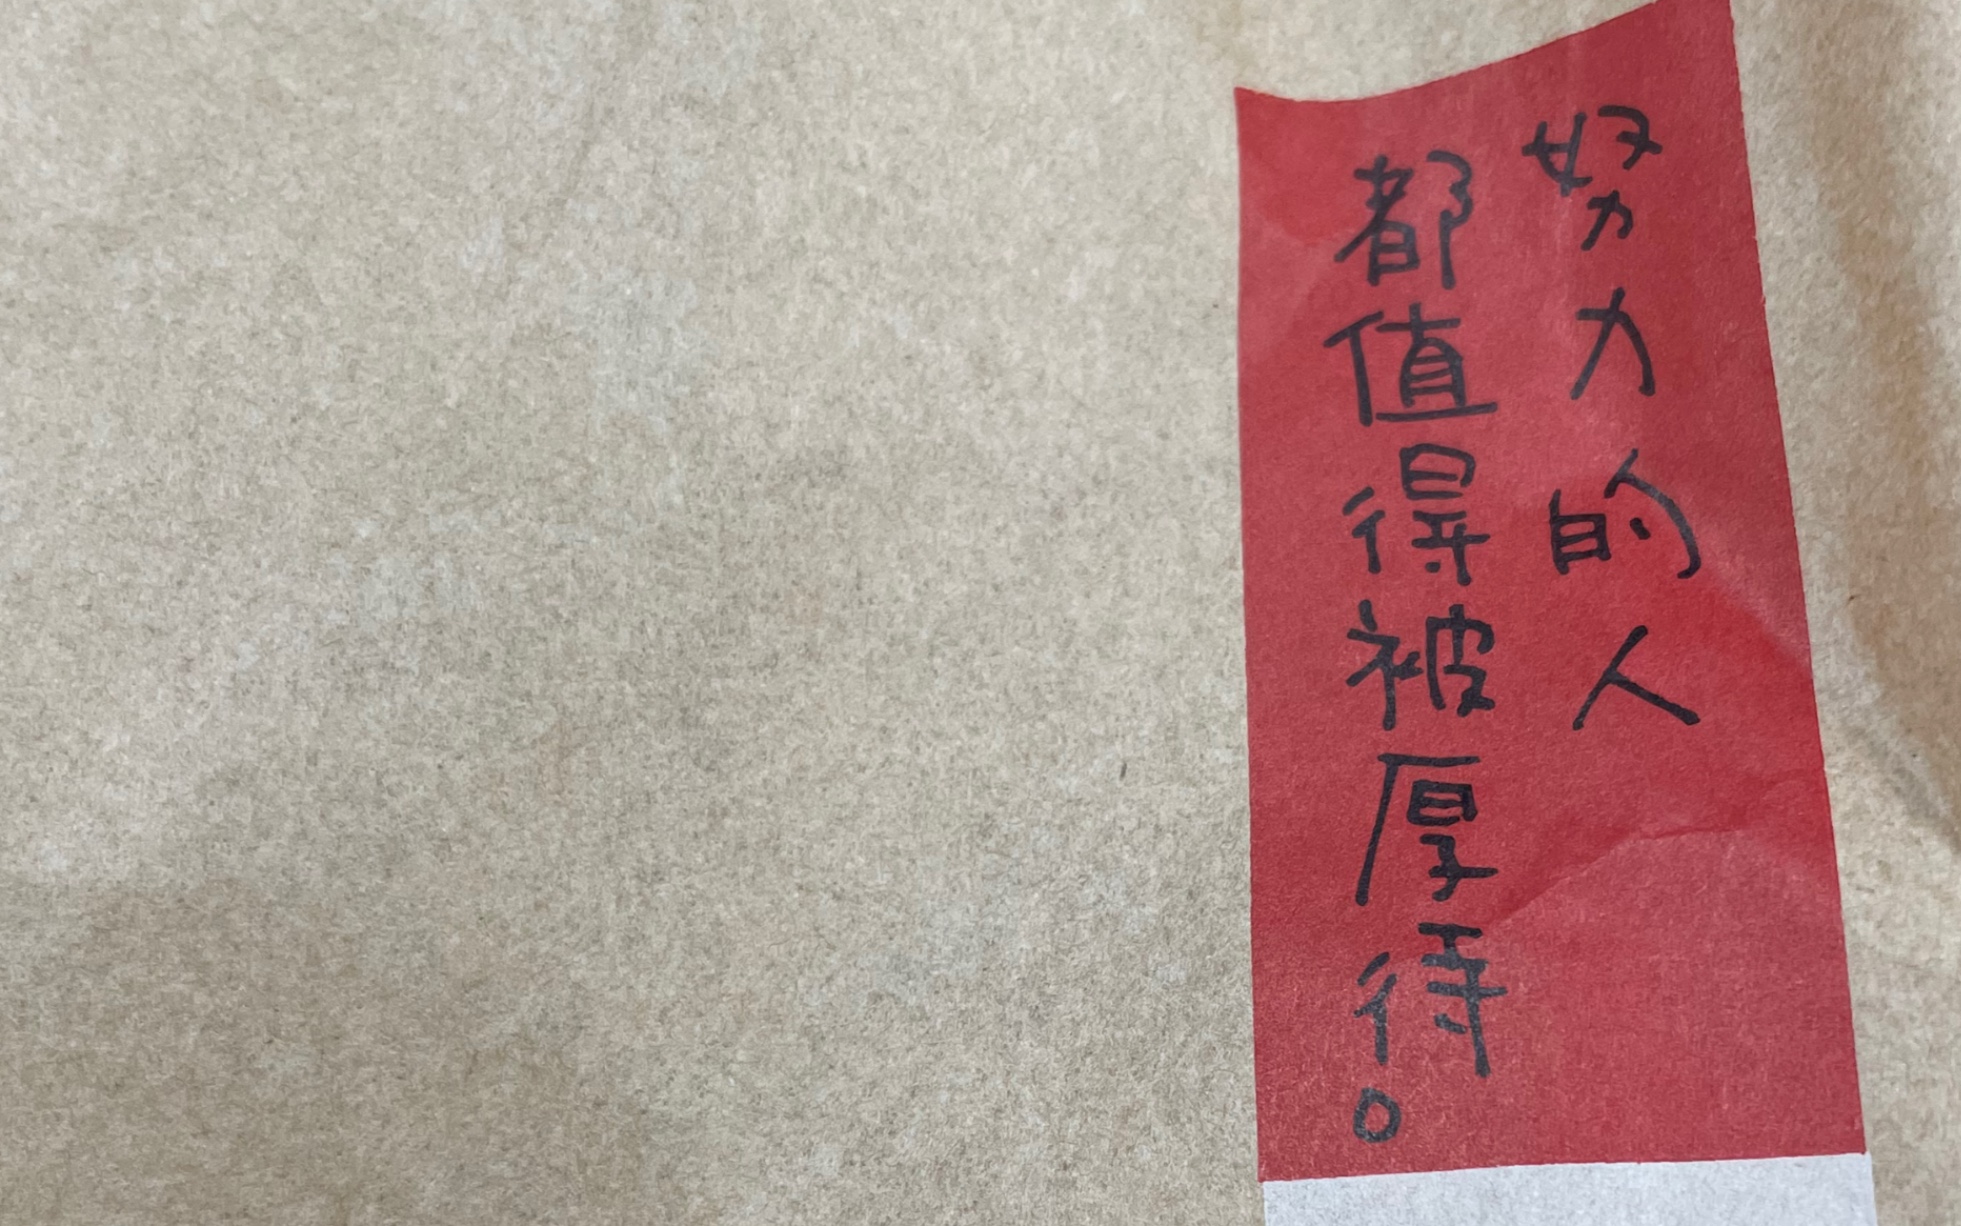 努力的人
都值得被厚待。